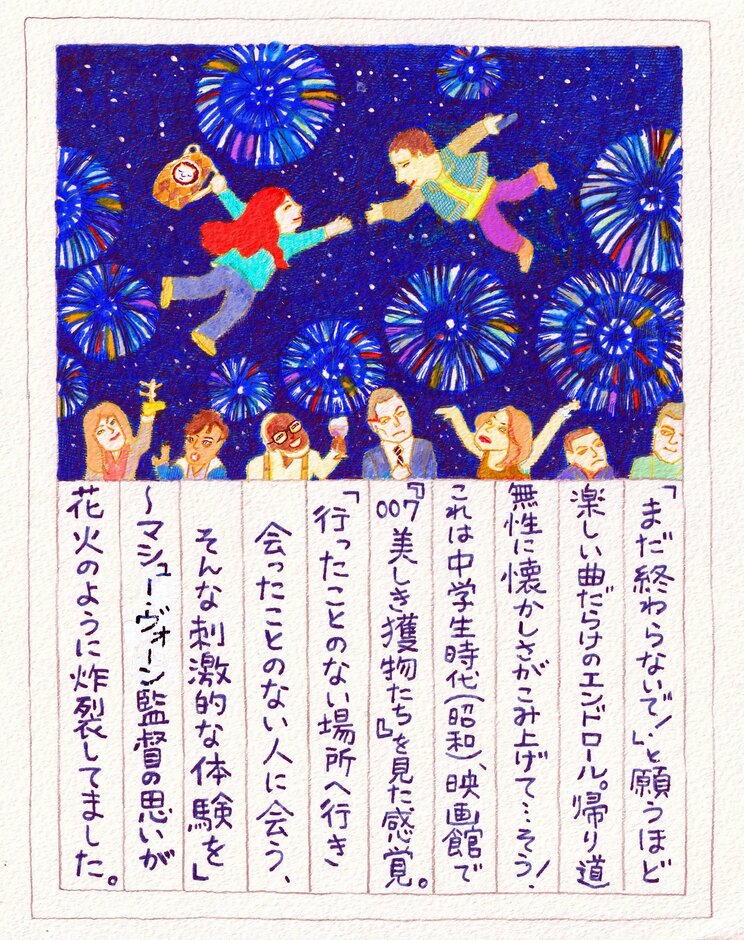 「まだ終わらないで!」と願うほど
楽しい曲だらけのエンドロール。帰り道
無性に懐かしさがこみ上げて…そう!
これは中学生時代(昭和)、映画館で
『007美しき獲物たち』を見た感覚。
「行ったことのない場所へ行き
会ったことのない人に会う、
そんな刺激的な体験を」
〜マシュー・ヴォーン監督の思いが
花火のように炸裂してました。